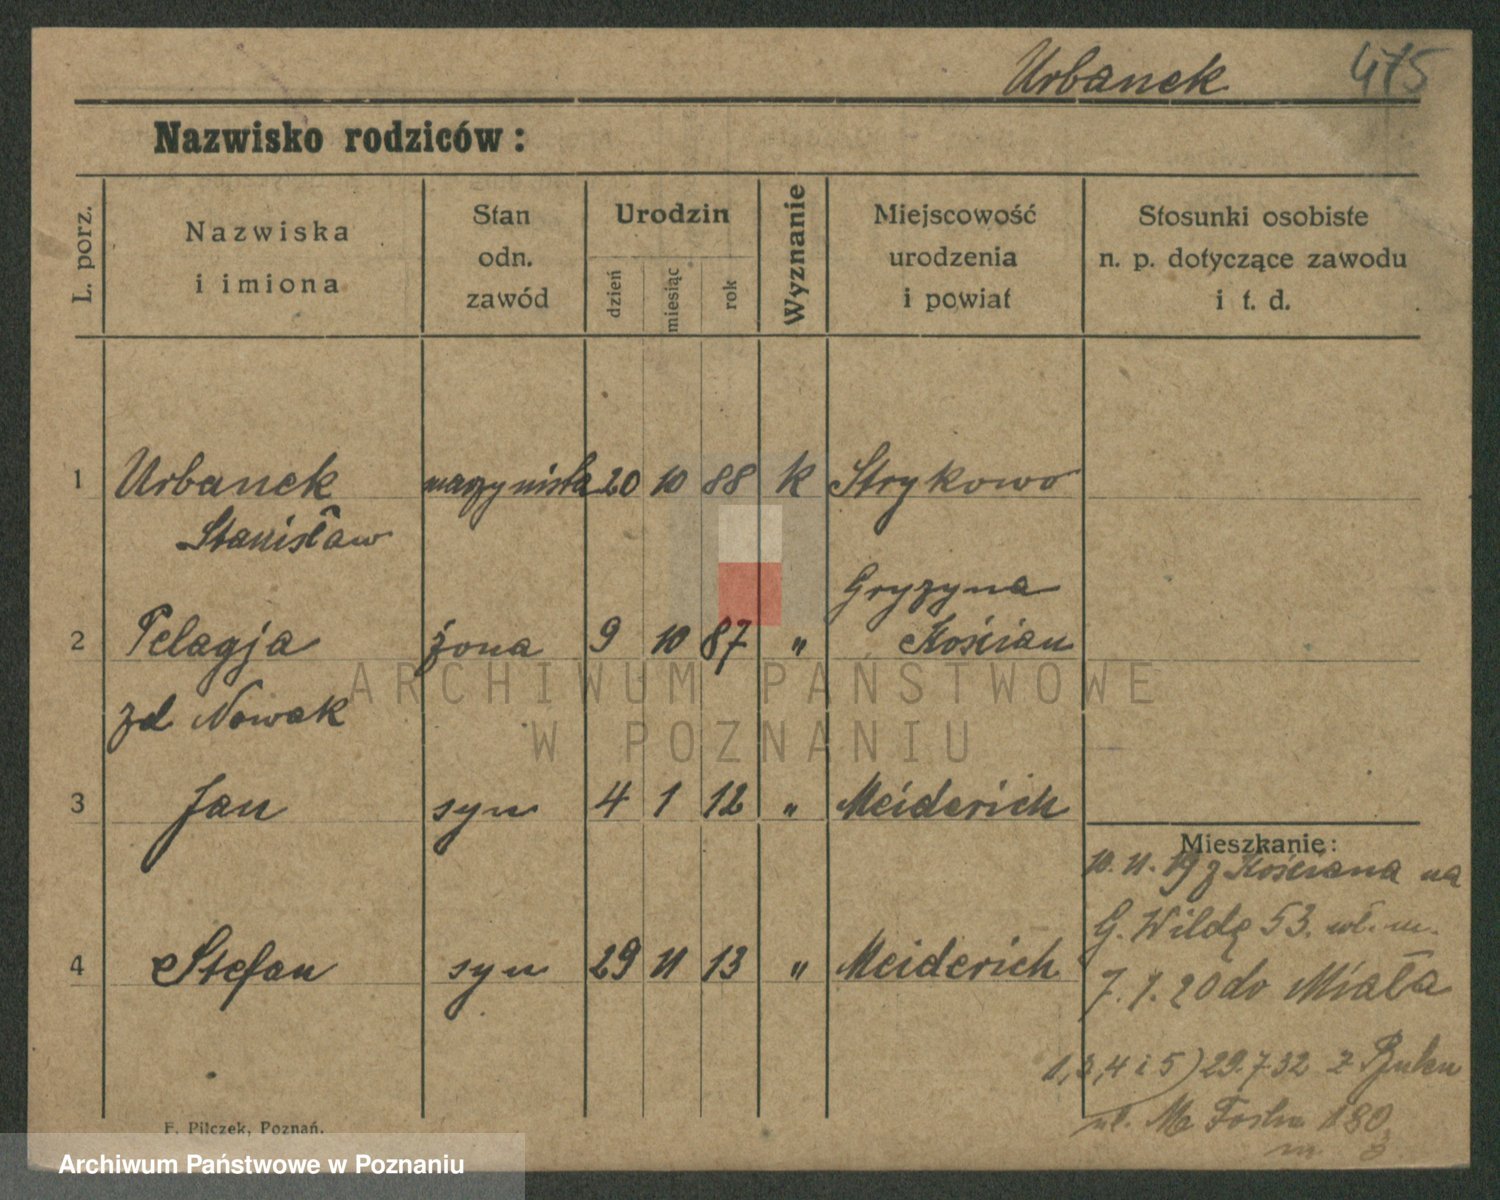 Urbanek 475
Nazwisko rodziców:
L. porz.
Nazwiska
i imiona
Stan
odn.
zawód
Urodzin
dzień
miesiąc
rok
Wyznanie
Miejscowość
urodzenia
i powiat
Stosunki osobiste
n. p. dotyczące zawodu
i t. d.
1 Urbanek maszynista 20 10 88 k Strykowo
Stanisław
Gryzyna
2 Pelagja żona 9 10 87 " Kościan
zd Nowak
3 Jan syn 4 1 12 " Meiderich
4 Stefan syn 29 11 13 " Meiderich
Mieszkanie:
10. 11. 19 z Kościana na
G. Wildę 53.
7. 1. 20 do Miała
1, 3, 4 i 5) 29.7.32 z Buku
ul. M. Focha 180
m 3
F. Pilczek, Poznań.
ARCHIWUM PAŃSTWOWE
W POZNANIU
Archiwum Państwowe w Poznaniu